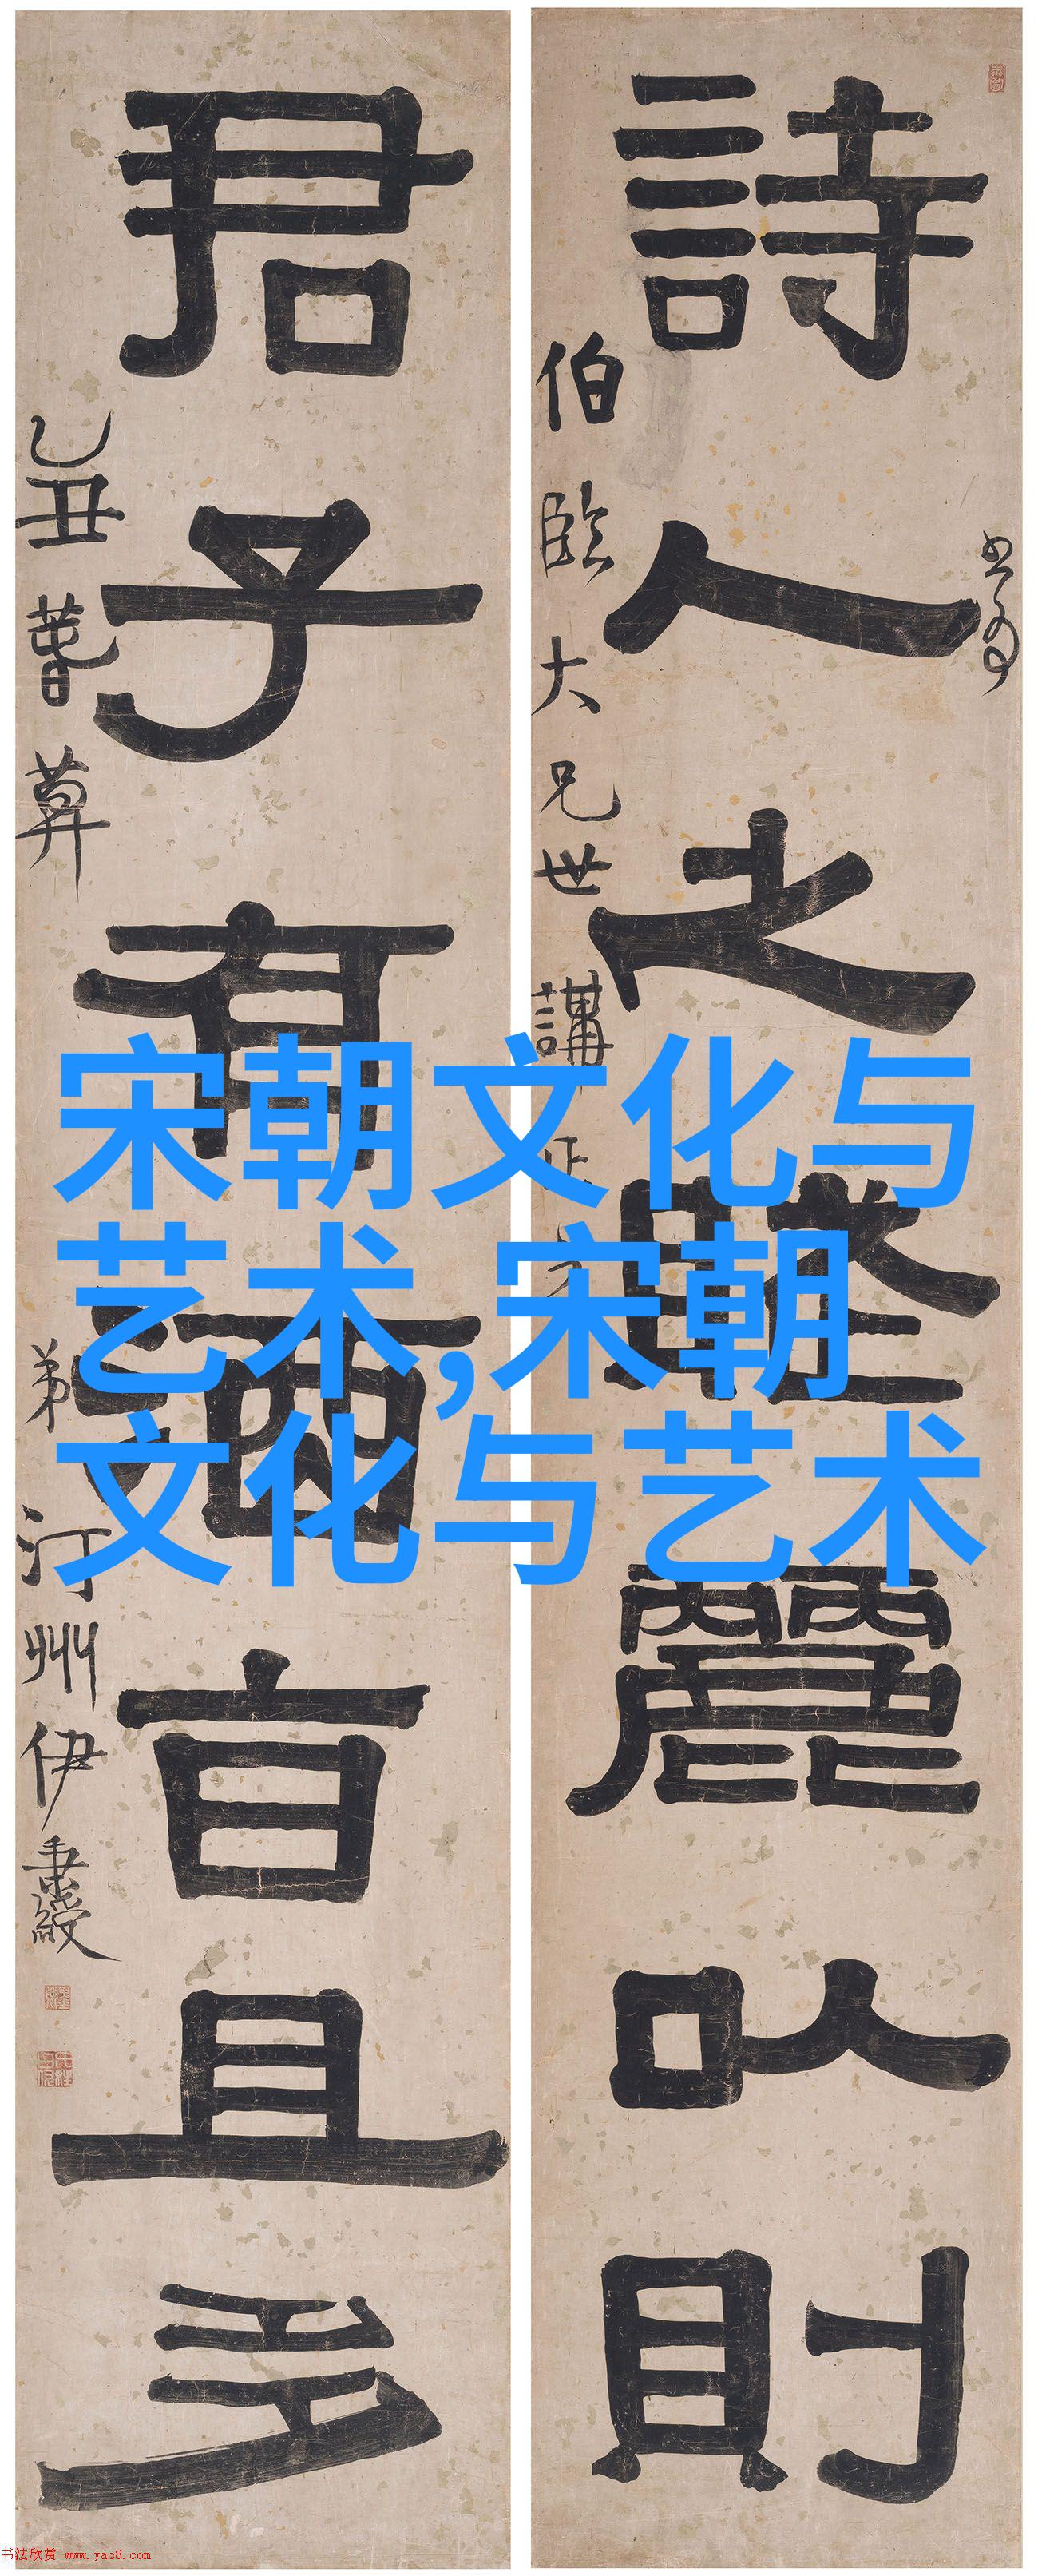 詩人之賦麗以則
伯臨大兄世講正之
君子有酒旨且多
乙丑
弟汀州伊秉綬
宋朝文化与
艺术,宋朝
文化与艺术
书法欣赏 www.yac8.com